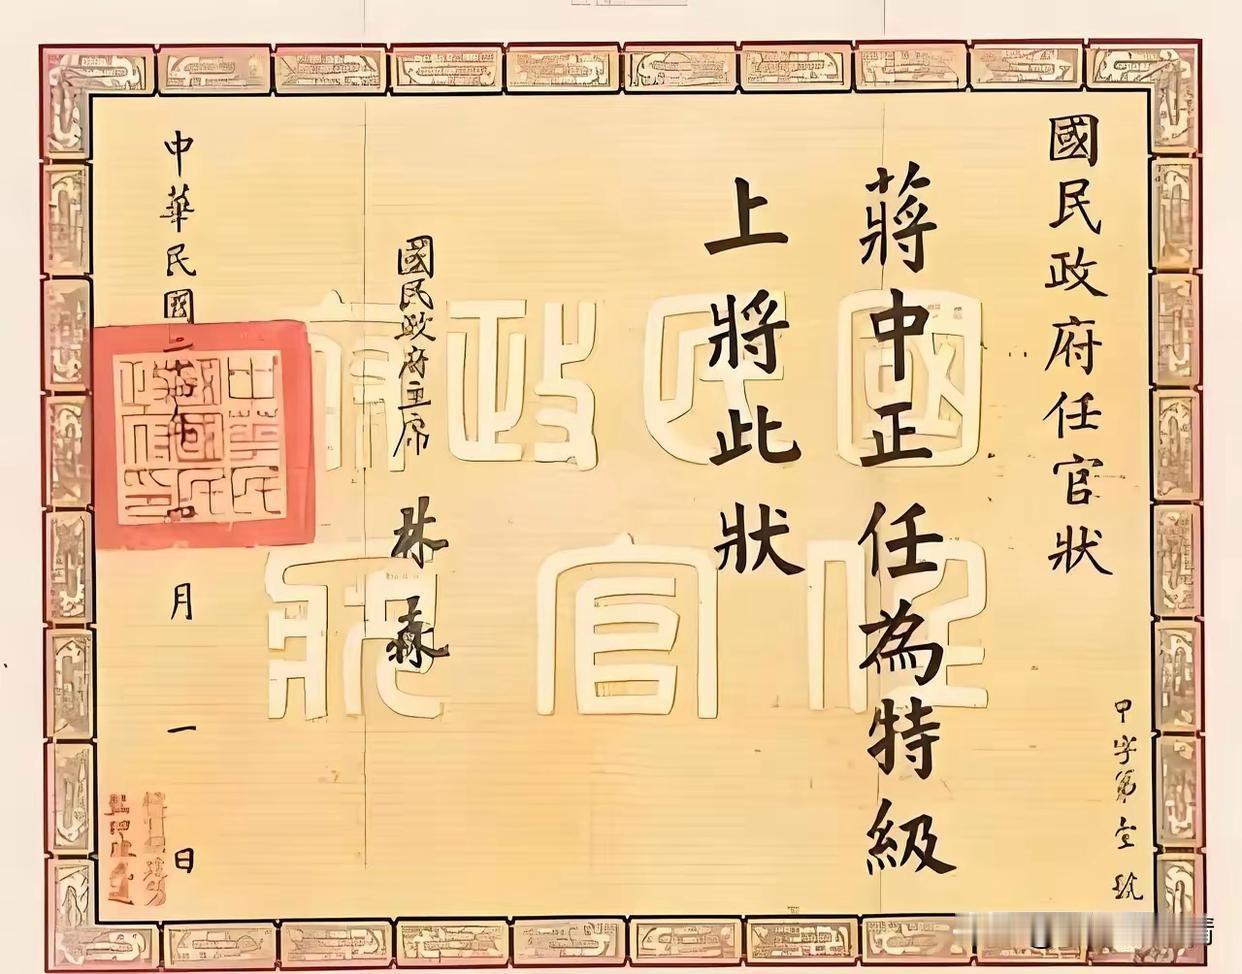 國民政府任官狀
甲字第壹號
蔣中正任為特級
上將此狀
國民政府主席 林森
中華民國二年四月一日
中華民國國民政府印
國民政府
任官狀